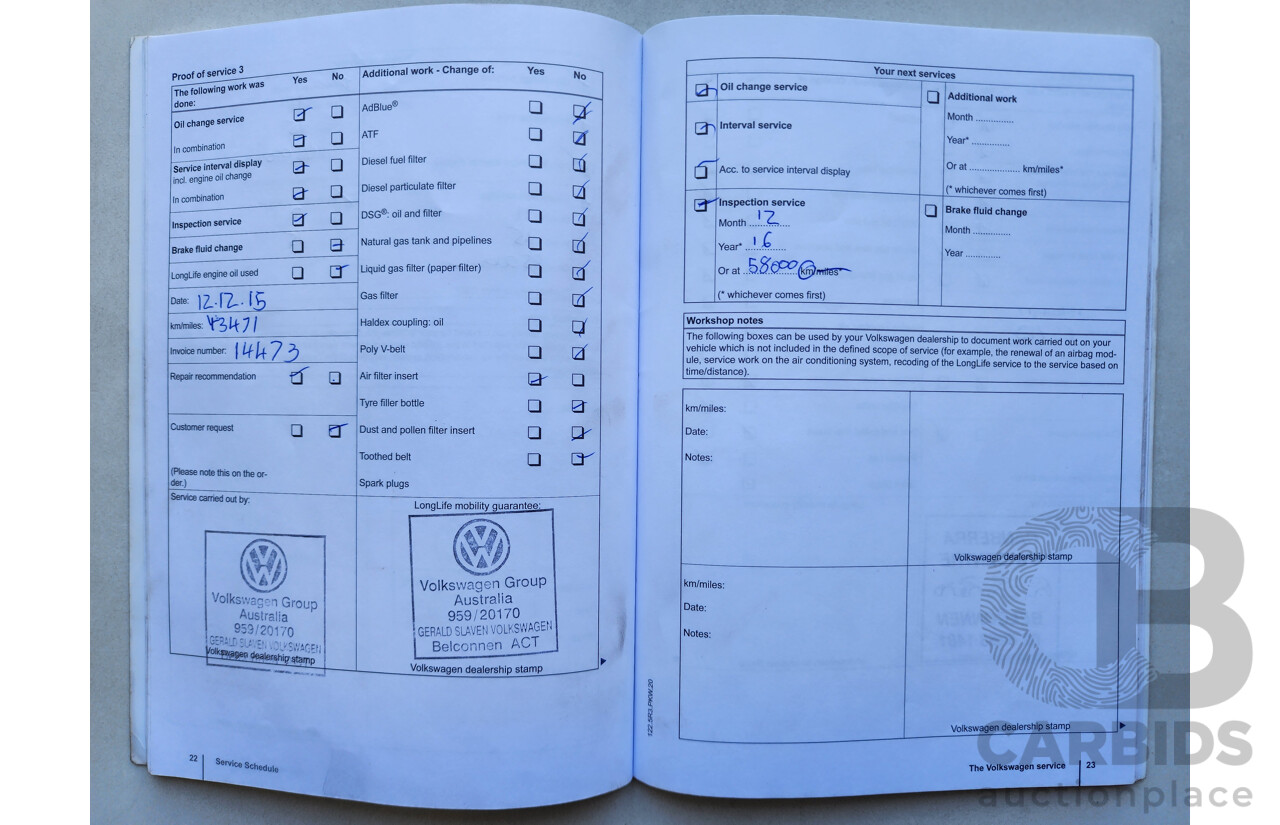 Proof of service 3
The following work was done: Yes No
Oil change service
In combination
Service interval display
incl. engine oil change
In combination
Inspection service
Brake fluid change
LongLife engine oil used
Date: 12.12.15
km/miles: 43471
Invoice number: 14473
Repair recommendation
Customer request
(Please note this on the or-
der.)
Service carried out by:
Volkswagen Group
Australia
959/20170
GERALD SLAVEN VOLKSWAGEN
Volkswagen dealership stamp
Additional work - Change of: Yes No
AdBlue®
ATF
Diesel fuel filter
Diesel particulate filter
DSG®: oil and filter
Natural gas tank and pipelines
Liquid gas filter (paper filter)
Gas filter
Haldex coupling: oil
Poly V-belt
Air filter insert
Tyre filler bottle
Dust and pollen filter insert
Toothed belt
Spark plugs
LongLife mobility guarantee:
Volkswagen Group
Australia
959/20170
GERALD SLAVEN VOLKSWAGEN
Belconnen ACT
Volkswagen dealership stamp
22 Service Schedule
Your next services
Oil change service
Interval service
Acc. to service interval display
Inspection service
Month 12
Year* 16
Or at 58000 km/miles*
(* whichever comes first)
Additional work
Month ..............
Year* ..............
Or at ................... km/miles*
(* whichever comes first)
Brake fluid change
Month .............
Year .............
Workshop notes
The following boxes can be used by your Volkswagen dealership to document work carried out on your
vehicle which is not included in the defined scope of service (for example, the renewal of an airbag mod-
ule, service work on the air conditioning system, recoding of the LongLife service to the service based on
time/distance).
km/miles:
Date:
Notes:
Volkswagen dealership stamp
km/miles:
Date:
Notes:
Volkswagen dealership stamp
122.5R3.PKW.20
The Volkswagen service 23
CARBIDS
auctionplace